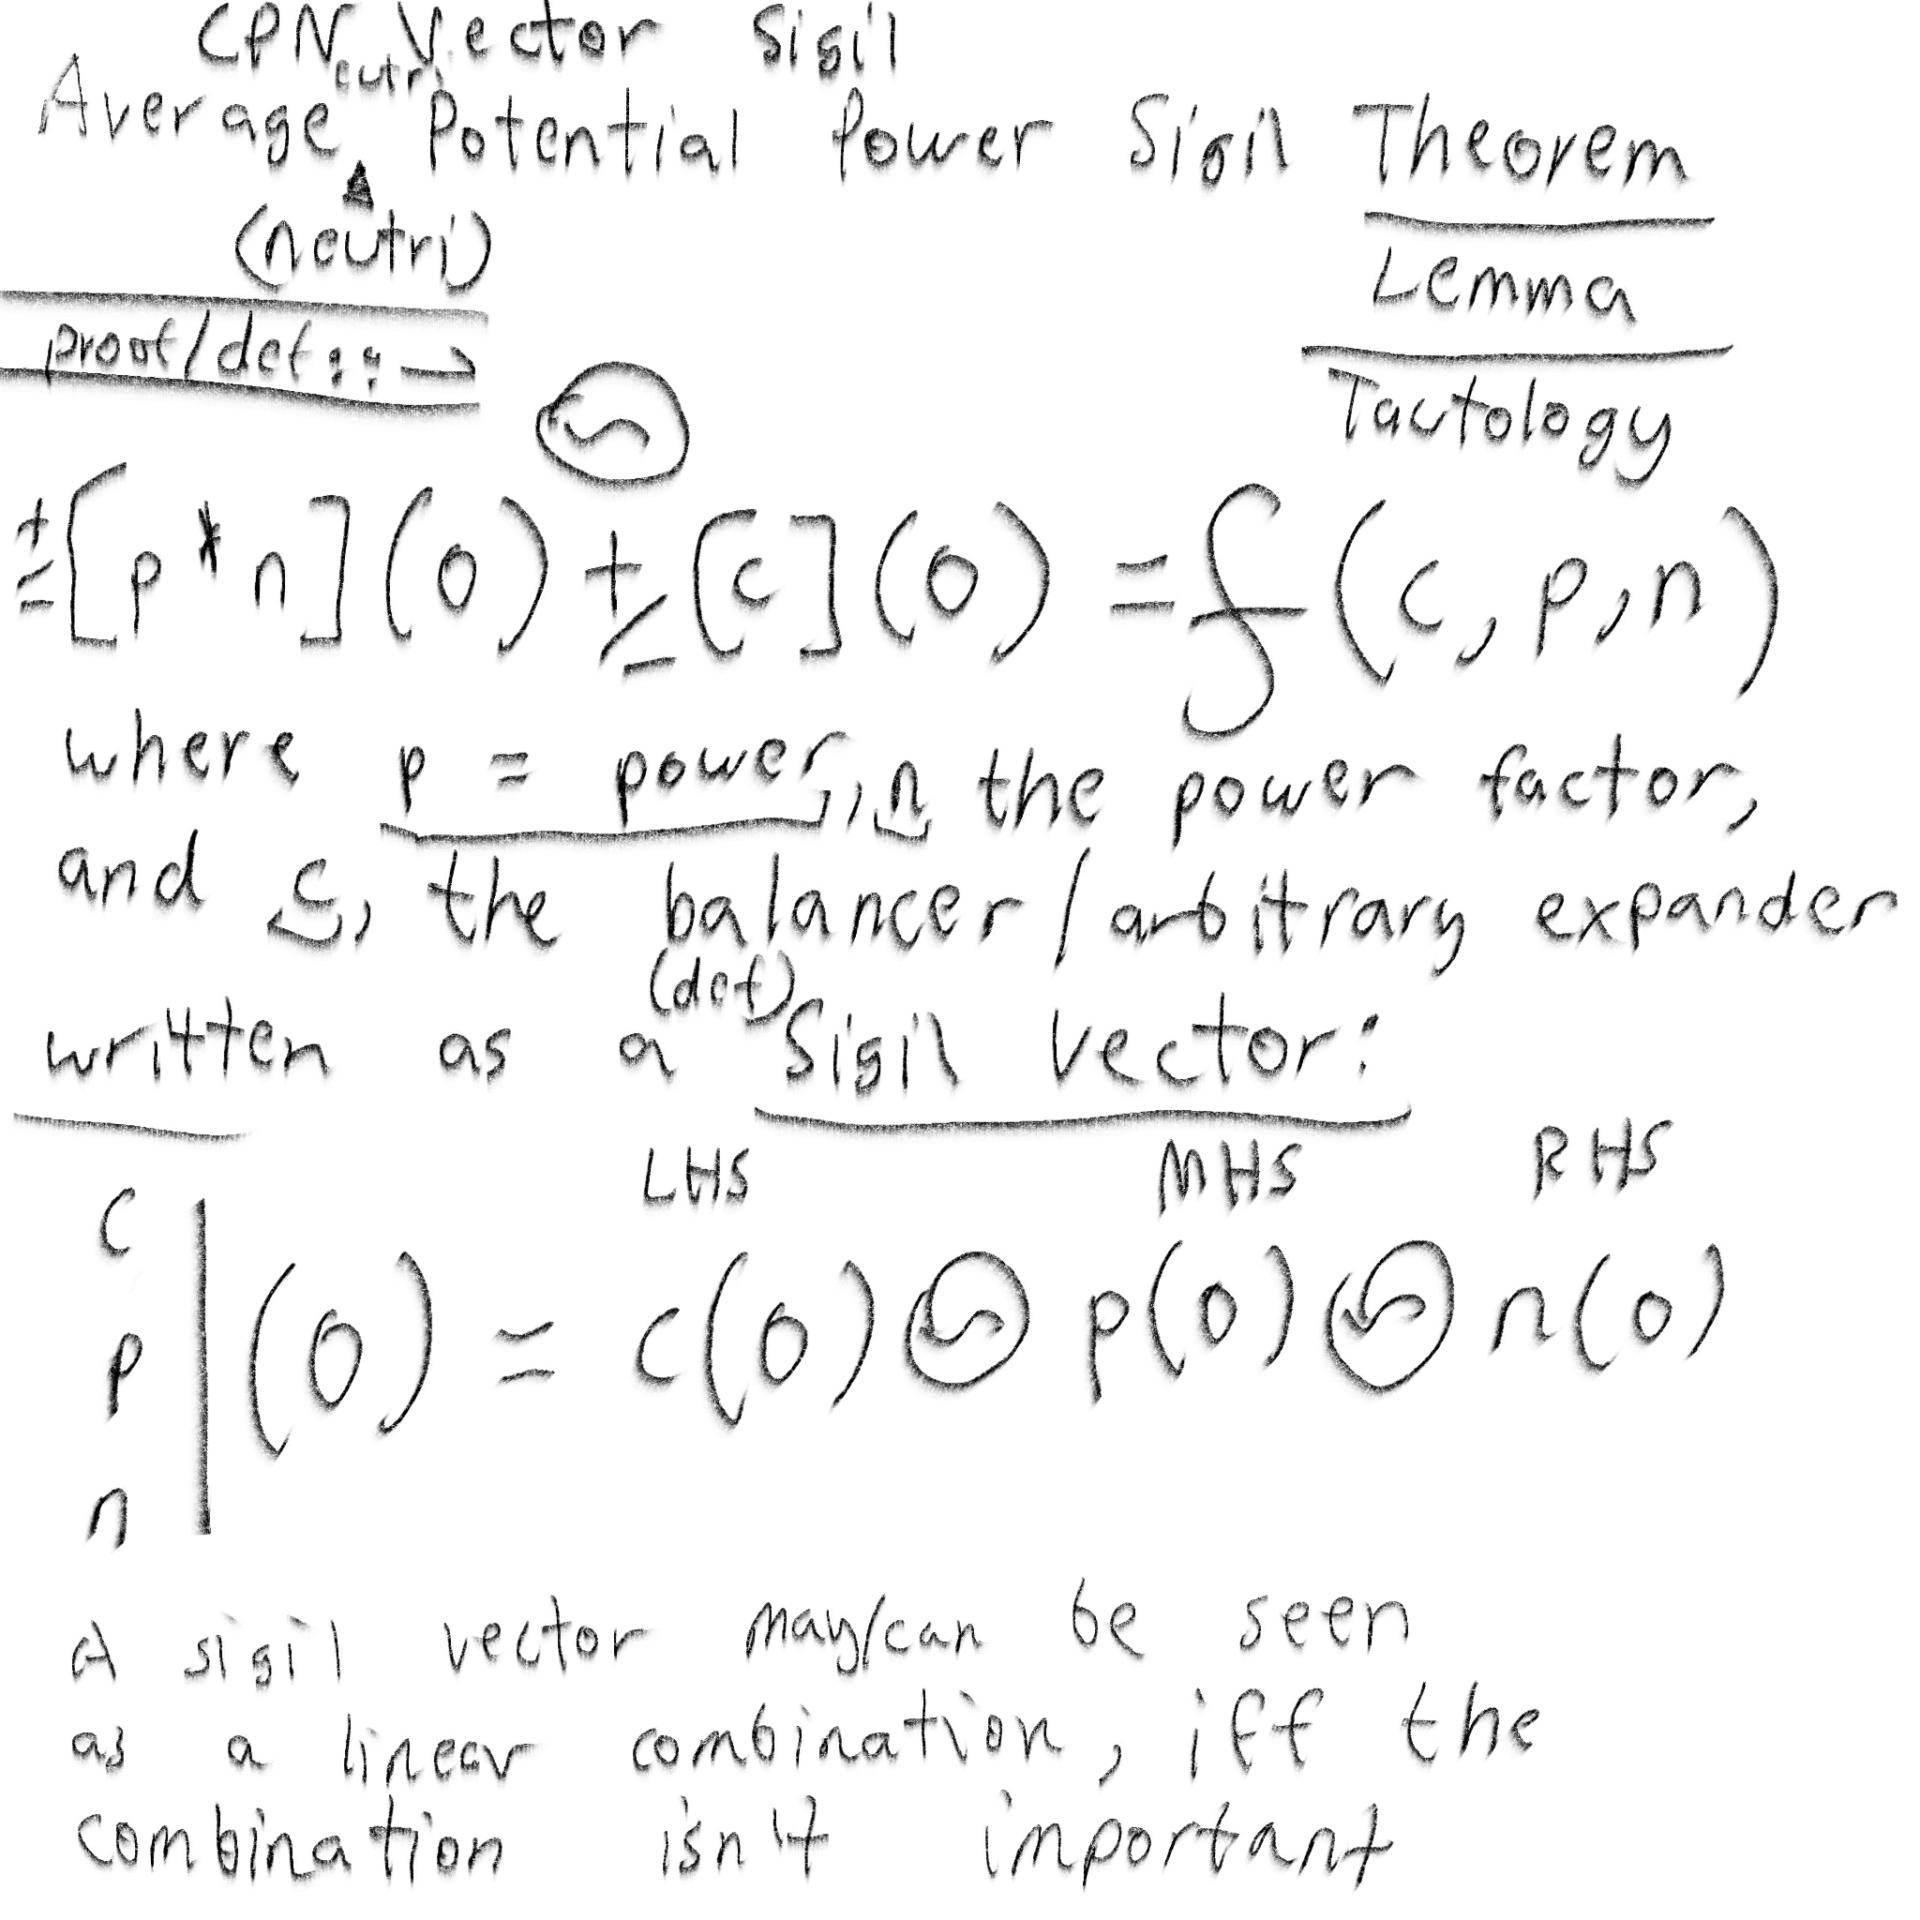 CPN Vector Sigil
eutri
Average Potential Power Sigil Theorem
(neutri)
Lemma
proof/def:: →
Tautology
±[p*n](0) ± [c](0) = f(c,p,n)
where p = power, n the power factor,
and c, the balancer/arbitrary expander
(def)
written as a Sigil vector:
LHS MHS RHS
c
p | (0) = c(0) p(0) n(0)
n
A sigil vector may/can be seen
as a linear combination, iff the
combination isn't important